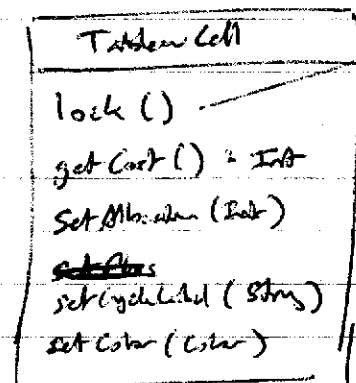 Tableau Cell
lock ()
getCost () : Int
Set Allocation (Int)
setCycleLabel (String)
setColor (Color)